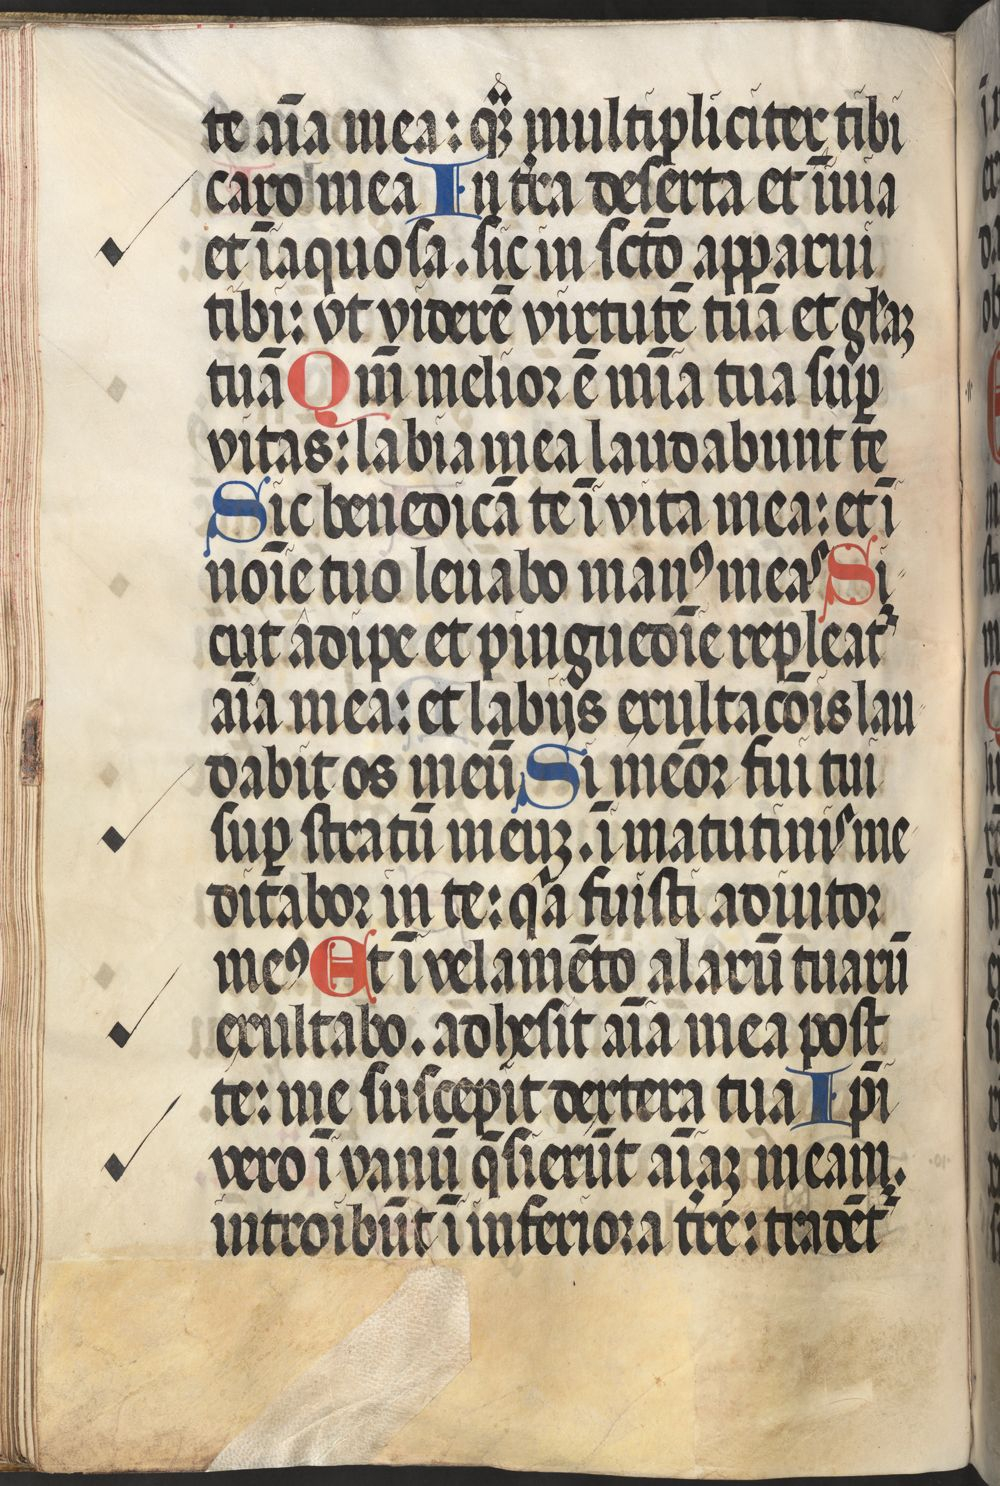 te aīa mea: qꝫ̄ multipliciter tibi
caro mea In tr̄a deserta et īuia
et īaquosa. sic in sctō apparui
tibi: vt viderē virtutē tuā et gl̄aꝫ
tuā Qm̄ melior ē mīa tua sup̄
vitas: labia mea laudabunt te
Sic benedicā te ī vita mea: et ī
noīe tuo leuabo manꝰ meas Si-
cut adipe et pinguedīe repleat᷑
aīa mea: et labijs exultacōis lau
dabit os meū Si meōr fui tui
suꝑ stratū meuꝫ. ī matutinis me-
ditabor in te: qͣ fuisti adiutor
meꝰ Et ī velamēto alarū tuarū
exultabo. adhesit aīa mea post
te: me suscepit dextera tua Ip̄i
vero ī vanū q̄sierūt aīaꝫ meam.
introibūt ī inferiora tr̄e: tradēt᷑